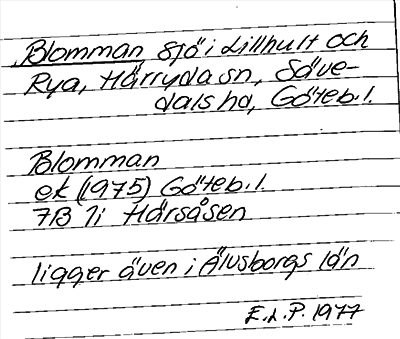 Blomman sjö i Lillhult och
Rya, Härryda sn, Säve-
dals hd, Göteb. l.
Blomman
ek (1975) Göteb. l.
7B 7i Hårsåsen
ligger även i Älvsborgs län
E.L.P. 1977